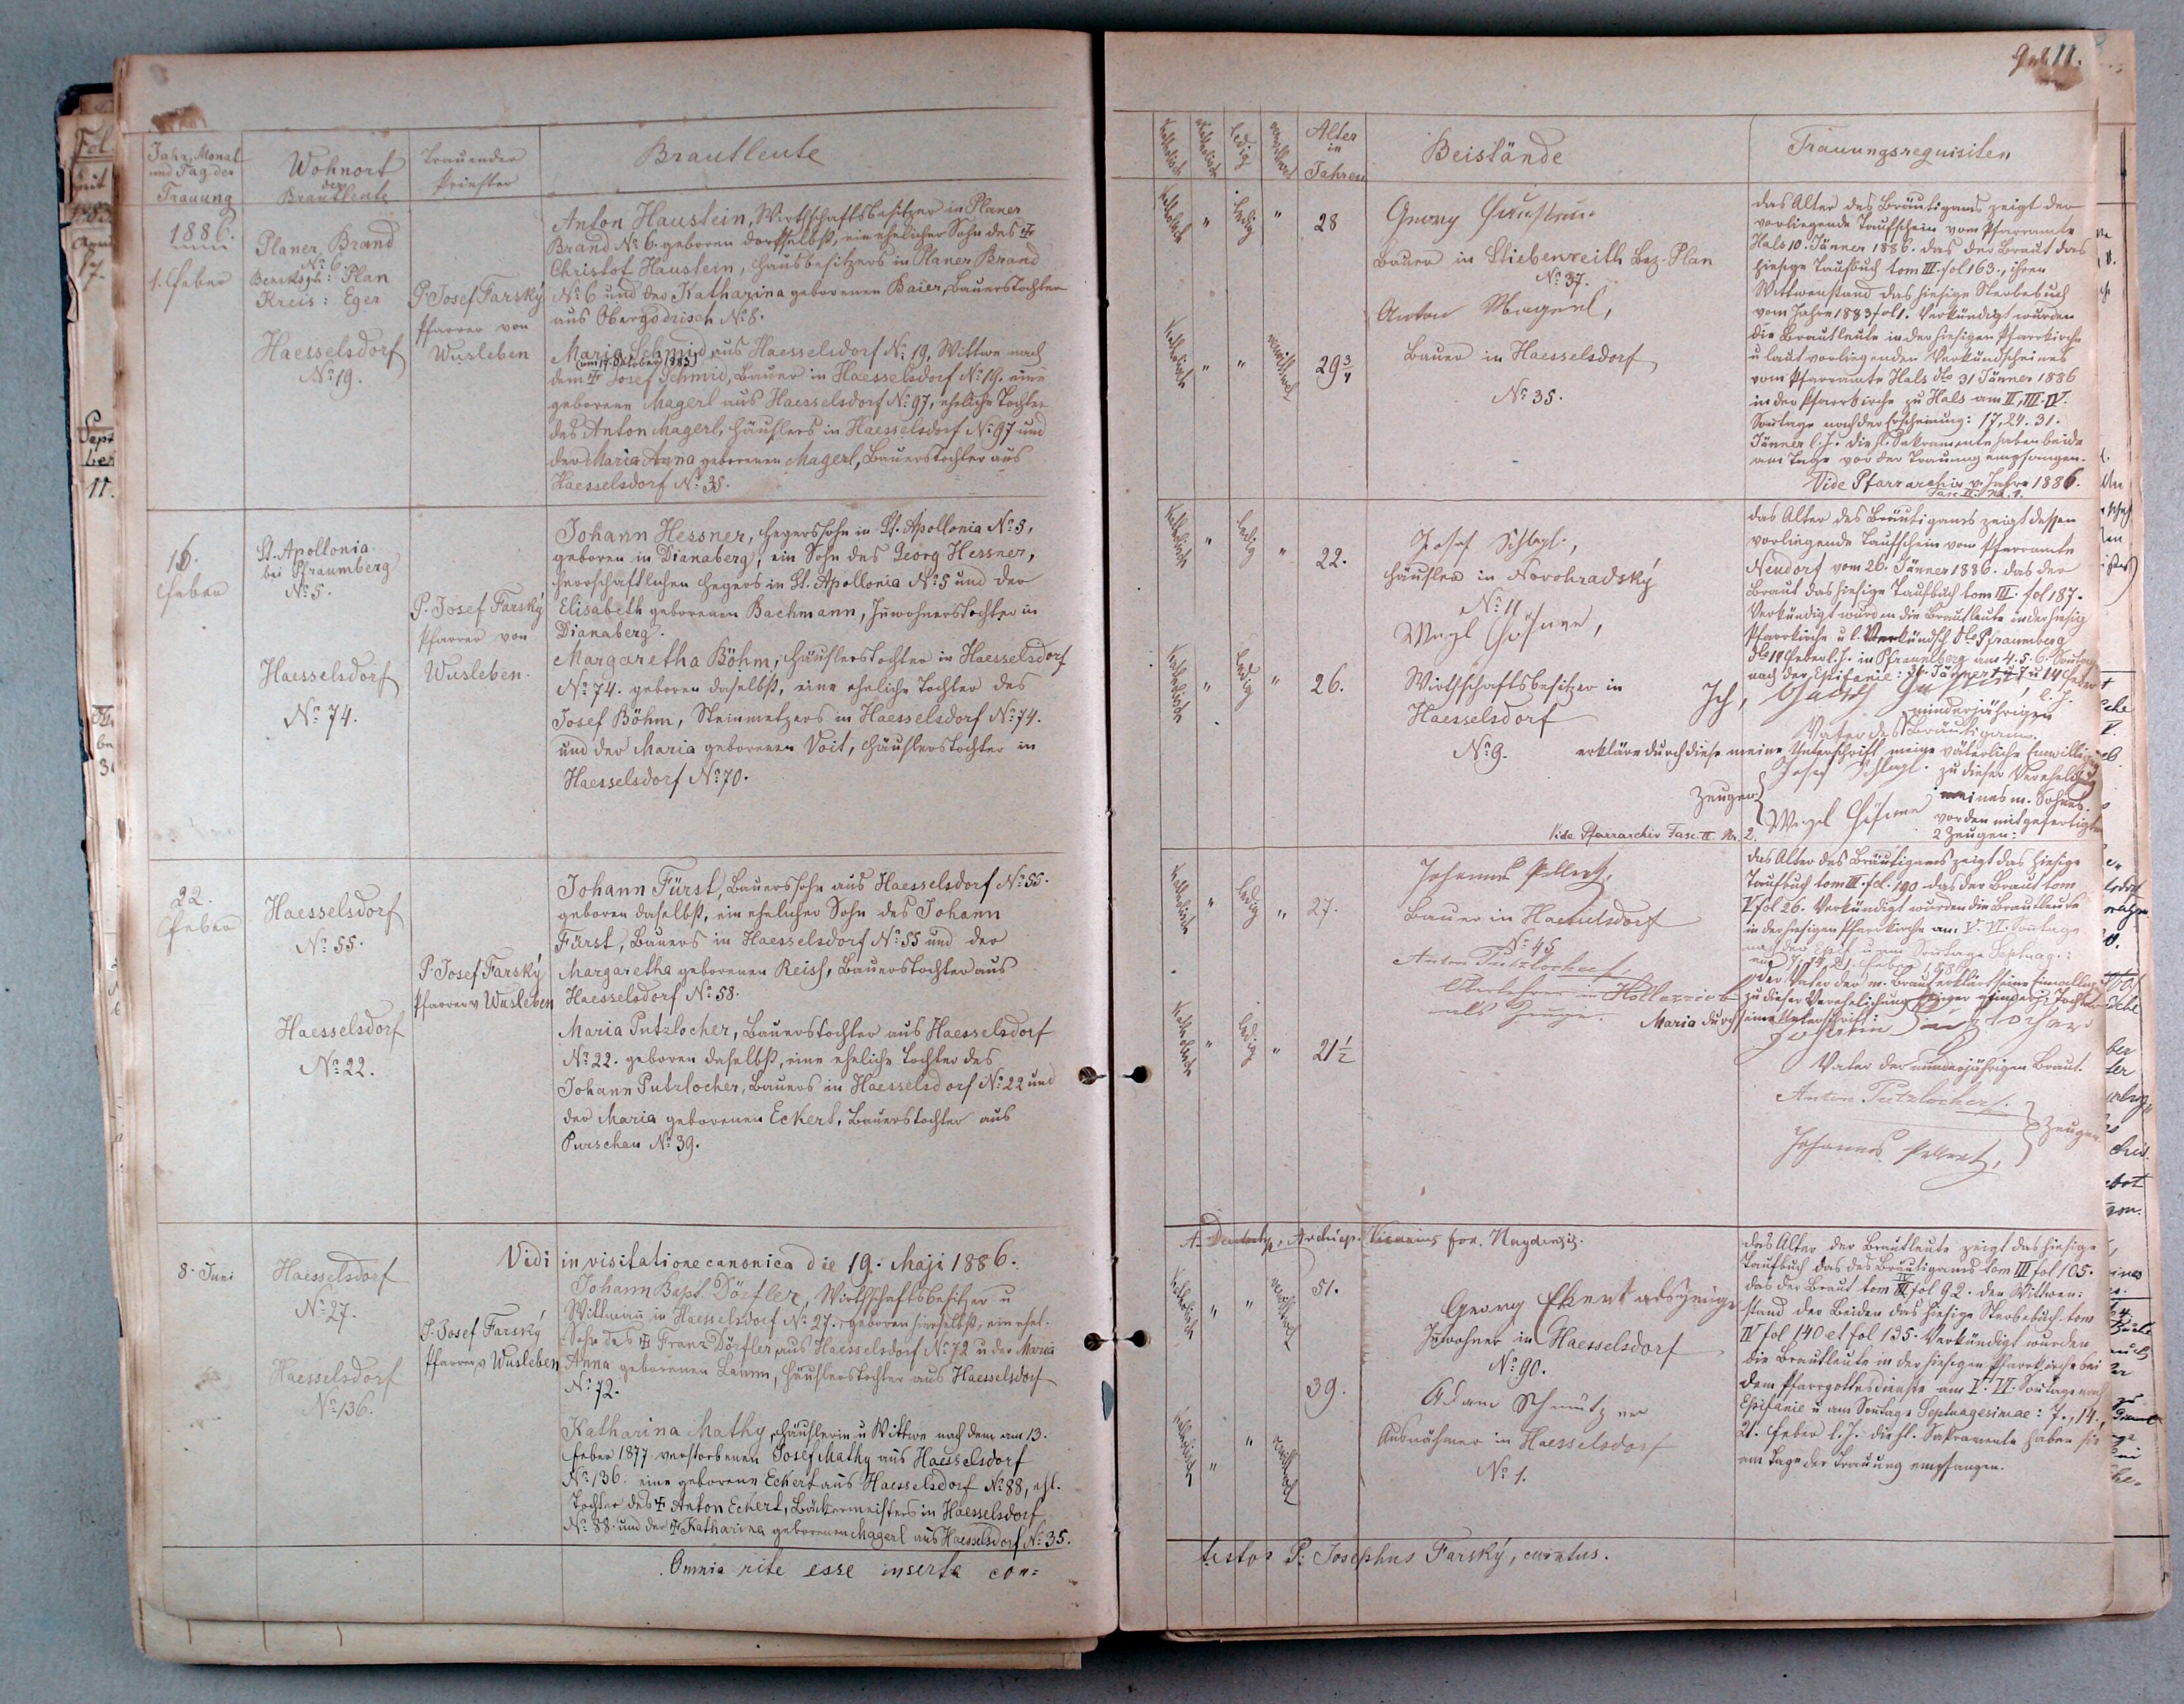 Jahr, Monat
und Tag der
Trauung
Wohnort
der
Brautleute
Trauender
Priester
Brautleute
1886.
1. Feber
Planer Brand
No 6
Bezirksger: Plan
Kreis: Eger
Haesselsdorf
No 19.
P. Josef Farský
Pfarrer von
Wusleben
Anton Haustein, Wirthschaftsbesitzer in Planer
Brand No 6. geboren dortselbst, ein ehelicher Sohn des ┼
Christof Haustein, Hausbesitzers in Planer Brand
No 6 und der Katharina geborenen Baier, Bauerstochter
aus Obergodrisch No 8.
Maria Schmid aus Haesselsdorf No 19, Wittwe nach
(am 17. Oktober 1883)
dem ┼ Josef Schmid, Bauer in Haesselsdorf No 19. eine
geborene Magerl aus Haesselsdorf No 97, eheliche Tochter
des Anton Magerl, Häuslers in Haesselsdorf No 97 und
der Maria Anna geborenen Magerl, Bauerstochter aus
Haesselsdorf No 35.
16.
Feber
St. Apollonia
bei Pfraumberg
No 5.
Haesselsdorf
No 74.
P. Josef Farský
Pfarrer von
Wusleben.
Johann Hessner, Hegerssohn in St. Apollonia No 5,
geboren in Dianaberg, ein Sohn des Georg Hessner,
herrschaftlichen Hegers in St. Apollonia No 5 und der
Elisabeth geborenen Bachmann, Inwohnerstochter in
Dianaberg.
Margaretha Böhm, Häuslerstochter in Haesselsdorf
No 74. geboren daselbst, eine eheliche Tochter des
Josef Böhm, Steinmetzers in Haesselsdorf No 74.
und der Maria geborenen Voit, Häuslerstochter in
Haesselsdorf No 70.
22.
Feber
Haesselsdorf
No 55.
Haesselsdorf
No 22.
P. Josef Farský
Pfarrer v Wusleben
Johann Fürst, Bauerssohn aus Haesselsdorf No 55.
geboren daselbst, ein ehelicher Sohn des Johann
Fürst, Bauers in Haesselsdorf No 55 und der
Margaretha geborenen Reish, Bauerstochter aus
Haesselsdorf No 58.
Maria Putzlocher, Bauerstochter aus Haesselsdorf
No 22. geboren daselbst, eine eheliche Tochter des
Johann Putzlocher, Bauers in Haesselsdorf No 22 und
der Maria geborenen Eckert, Bauerstochter aus
Purschau No 39.
Vidi in visitatione canonica die 19. Maji 1886.
8. Juni
Haesselsdorf
No 27.
Haesselsdorf
No 136.
P. Josef Farský
Pfarrer v Wusleben
Johann Bapt. Dörfler, Wirthschaftsbesitzer u
Wittmann in Haesselsdorf No 27. geboren hierselbst, ein ehel.
Sohn des ┼ Franz Dörfler aus Haesselsdorf No 72 u der Maria
Anna geborenen Lamm, Häuslerstochter aus Haesselsdorf
No 72.
Katharina Mathy, Häuslerin u Wittwe nach dem am 13.
Feber 1877 verstorbenen Josef Mathy aus Haesselsdorf
No 136. eine geborene Eckert aus Haesselsdorf No 88, ehl.
Tochter des ┼ Anton Eckert, Bäckermeisters in Haesselsdorf
No 88. und der ┼ Katharina geborenen Magerl aus Haesselsdorf No 35.
Omnia rite esse inserta con=
11.
Katholisch
Ledig
Alter
in
Jahren
Beistände
Trauungsrequisiten
Katholisch " Ledig " 28
Katholisch " " verwittwet 29 3/4
Georg Haustein
Bauer in Stiebenreith Bez. Plan
No 37.
Anton Magerl,
Bauer in Haesselsdorf
No 35.
das Alter des Bräutigams zeigt der
vorliegende Taufschein vom Pfarramte
Hals 10. Jänner 1886. das der Braut das
hiesige Taufbuch tom III. fol 163., ihren
Wittwenstand das hiesige Sterbebuch
vom Jahre 1883 fol 1. Verkündigt wurden
die Brautleute in der hiesigen Pfarrkirche
u laut vorliegenden Verkündscheines
vom Pfarramte Hals dto 31 Jänner 1886
in der Pfarrkirche zu Hals am II, III. IV.
Sontage nach der Erscheinung: 17, 24. 31.
Jänner l. J. die hl. Sakramente haben beide
am Tage vor der Trauung empfangen.
Vide Pfarrarchiv v. Jahre 1886.
Fasc. II. No. 1.
Katholisch " Ledig " 22.
Katholisch " Ledig 26.
Josef Schlagl,
Häusler in Novohradský
No 11
Wirthschaftsbesitzer in
Haesselsdorf
No 9.
das Alter des Bräutigams zeigt dessen
vorliegende Taufschein vom Pfarramte
Neudorf vom 26. Jänner 1886. das der
Braut das hiesige Taufbuch tom III. fol 187.
Verkündigt wurden die Brautleute in der hiesig
Pfarrkirche u l. Verkündsch. dto Pfraumberg
dto 14 Feber l. J. in Pfraumberg am 4. 5. 6. Sontag
nach der Epifanie: 31. Jänner u 7 u 14 Feber
l. J.
Ich,
minderjährigen
Vater des Bräutigams.
erkläre durch diese meine Unterschrift meine väterliche Einwilligung
Josef Schlagl. zu dieser Verehelichung
Zeugen: meines m. Sohnes.
vor den mitgefertigten
2 Zeugen:
Vide Pfarrarchiv Fasc. II. No. 2.
Katholisch " Ledig " 27.
Katholisch " Ledig " 21 1/2
Johannes Pellert,
Bauer in Haesselsdorf
No 45
Anton Putzlocher,
Oberlehrer in Hollezrieb
als Zeuge.
das Alter des Bräutigams zeigt das hiesige
Taufbuch tom III. fol. 190 das der Braut tom
V fol 26. Verkündigt wurden die Brautleute
in der hiesigen Pfarrkirche am V. VI. Sontage
nach der Epif. u am Sontage Septuag.:
am 7, 14, 21. Feber 1886.
der Vater der m. Braut erklärt seine Einwillig
zu dieser Verehelichung seiner minderj. Tochter
Maria durch seine Unterschrift:
Johann Putzlocher
Vater der minderjährigen Braut.
Anton Putzlocher
Johannes Pellert,
Zeugen
Katholisch " " verwittwet 51.
Katholisch " " verwittwet 39.
Georg Ekert als Zeuge
Inwohner in Haesselsdorf
No 90.
Adam Schmutzer
Ausnähmer in Haesselsdorf
No 1.
das Alter der Brautleute zeigt das hiesige
Taufbuch das des Bräutigams tom III fol 105.
das der Braut tom IV fol 92. den Wittwen=
stand der Beiden das hiesige Sterbebuch tom
IV fol 140 et fol 135. Verkündigt wurden
die Brautleute in der hiesigen Pfarrkirche bei
dem Pfarrgottesdienste am V. VI. Sontage nach
Epifanie u am Sontage Septuagesimae: 7., 14.,
21. Feber l. J. die hl. Sakramente haben sie
am Tage der Trauung empfangen.
testor P. Josephus Farský, curatus.